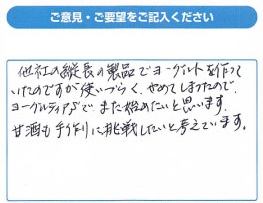 ご意見・ご要望をご記入ください
他社の縦長の製品でヨーグルトを作って
いたのですが使いづらく、やめてしまったので、
ヨーグルティアSでまた始めたいと思います。
甘酒も手作りに挑戦したいと考えています。